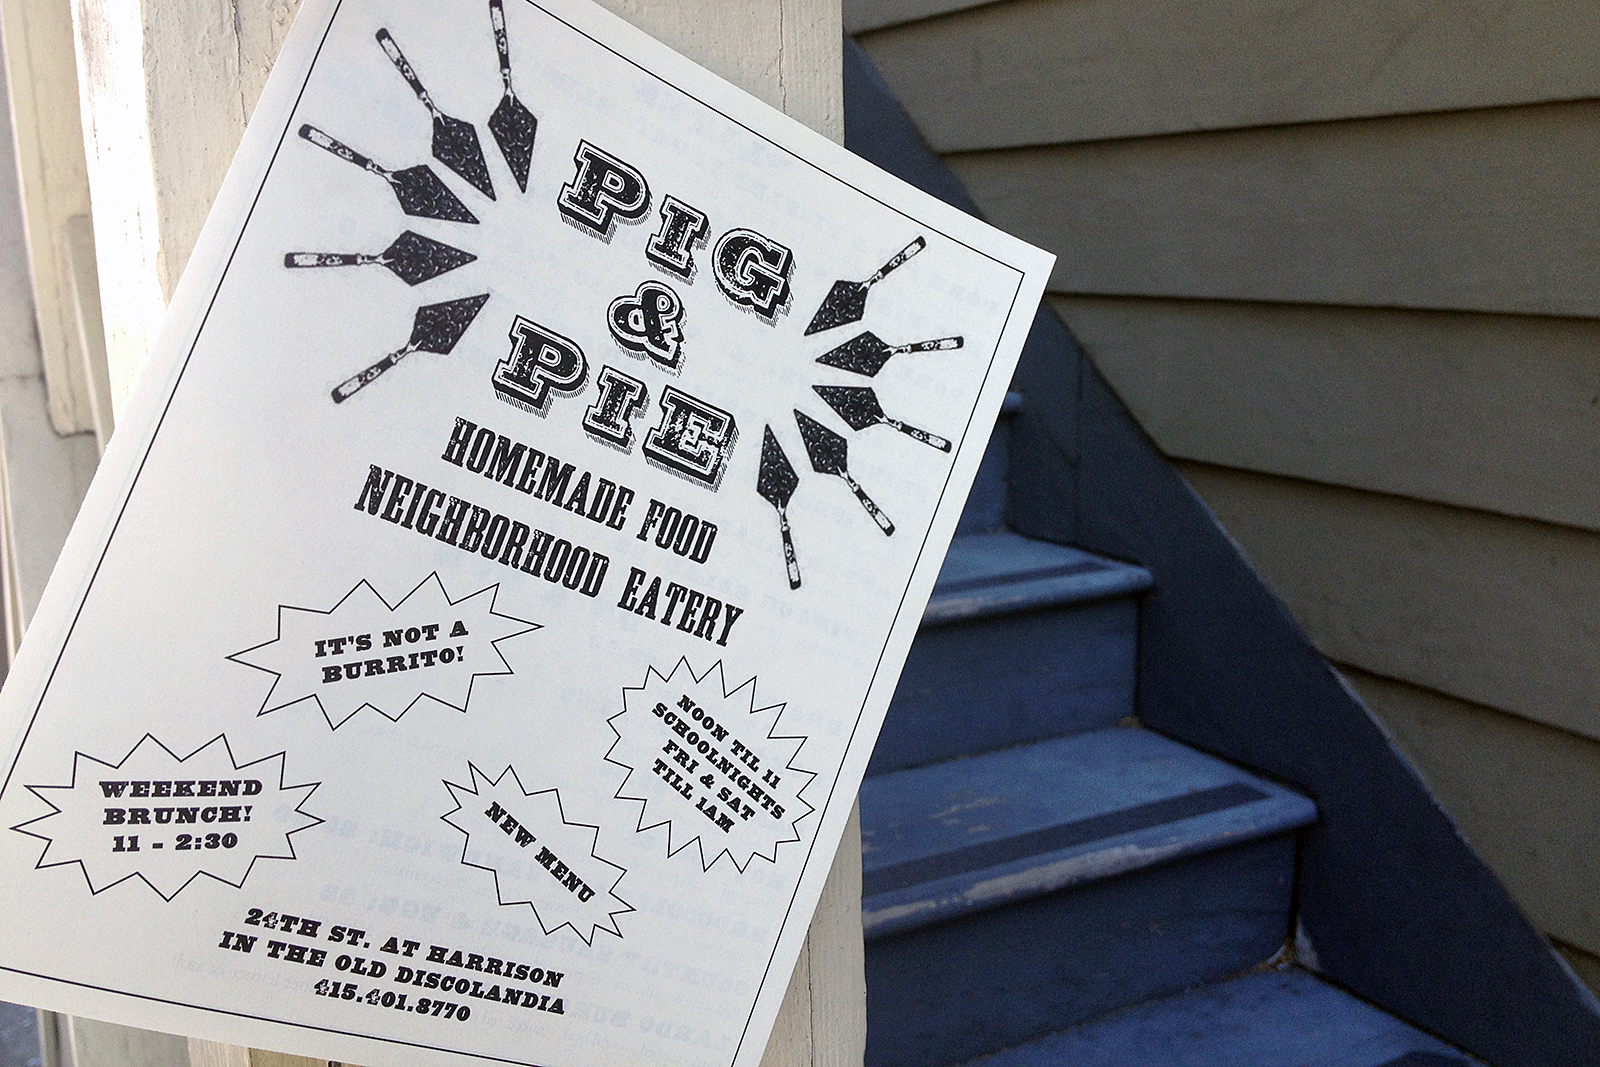 PIG
&
PIE
HOMEMADE FOOD
NEIGHBORHOOD EATERY
IT'S NOT A
BURRITO!
NOON TIL 11
SCHOOLNIGHTS
FRI & SAT
TILL 1AM
WEEKEND
BRUNCH!
11 - 2:30
NEW MENU
24TH ST. AT HARRISON
IN THE OLD DISCOLANDIA
415.401.8770